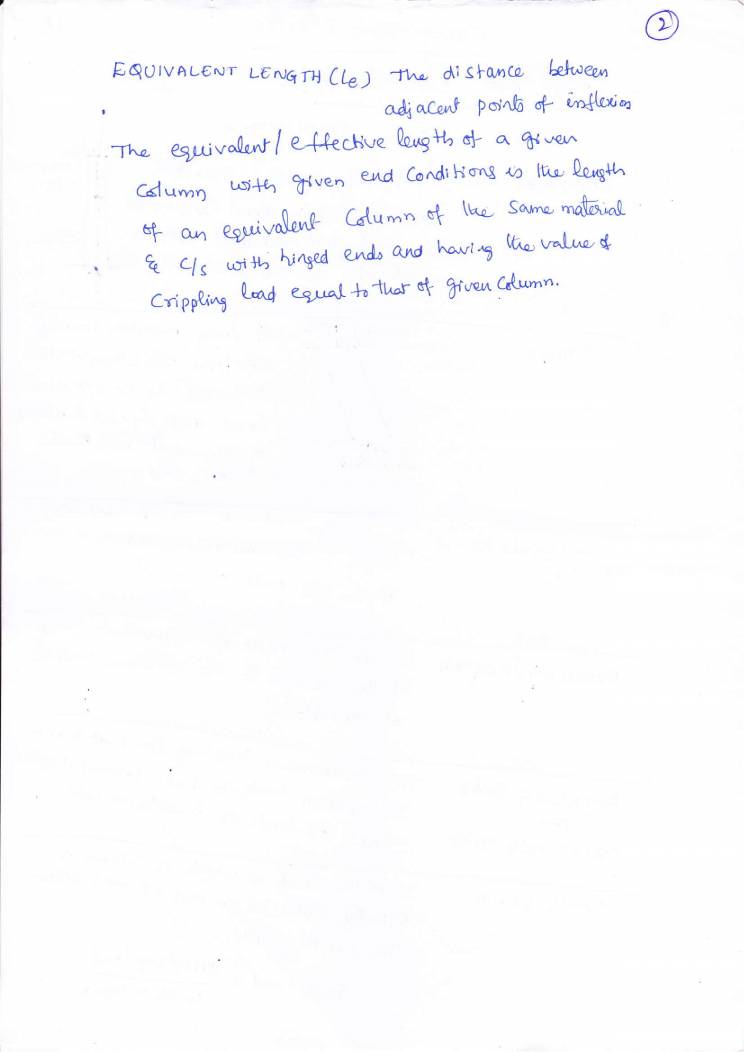 2
EQUIVALENT LENGTH (Le) The distance between
adjacent points of inflexion
The equivalent/effective length of a given
Column with given end Conditions is the length
of an equivalent Column of the Same material
& C/s with hinged ends and having the value of
Crippling load equal to that of given Column.